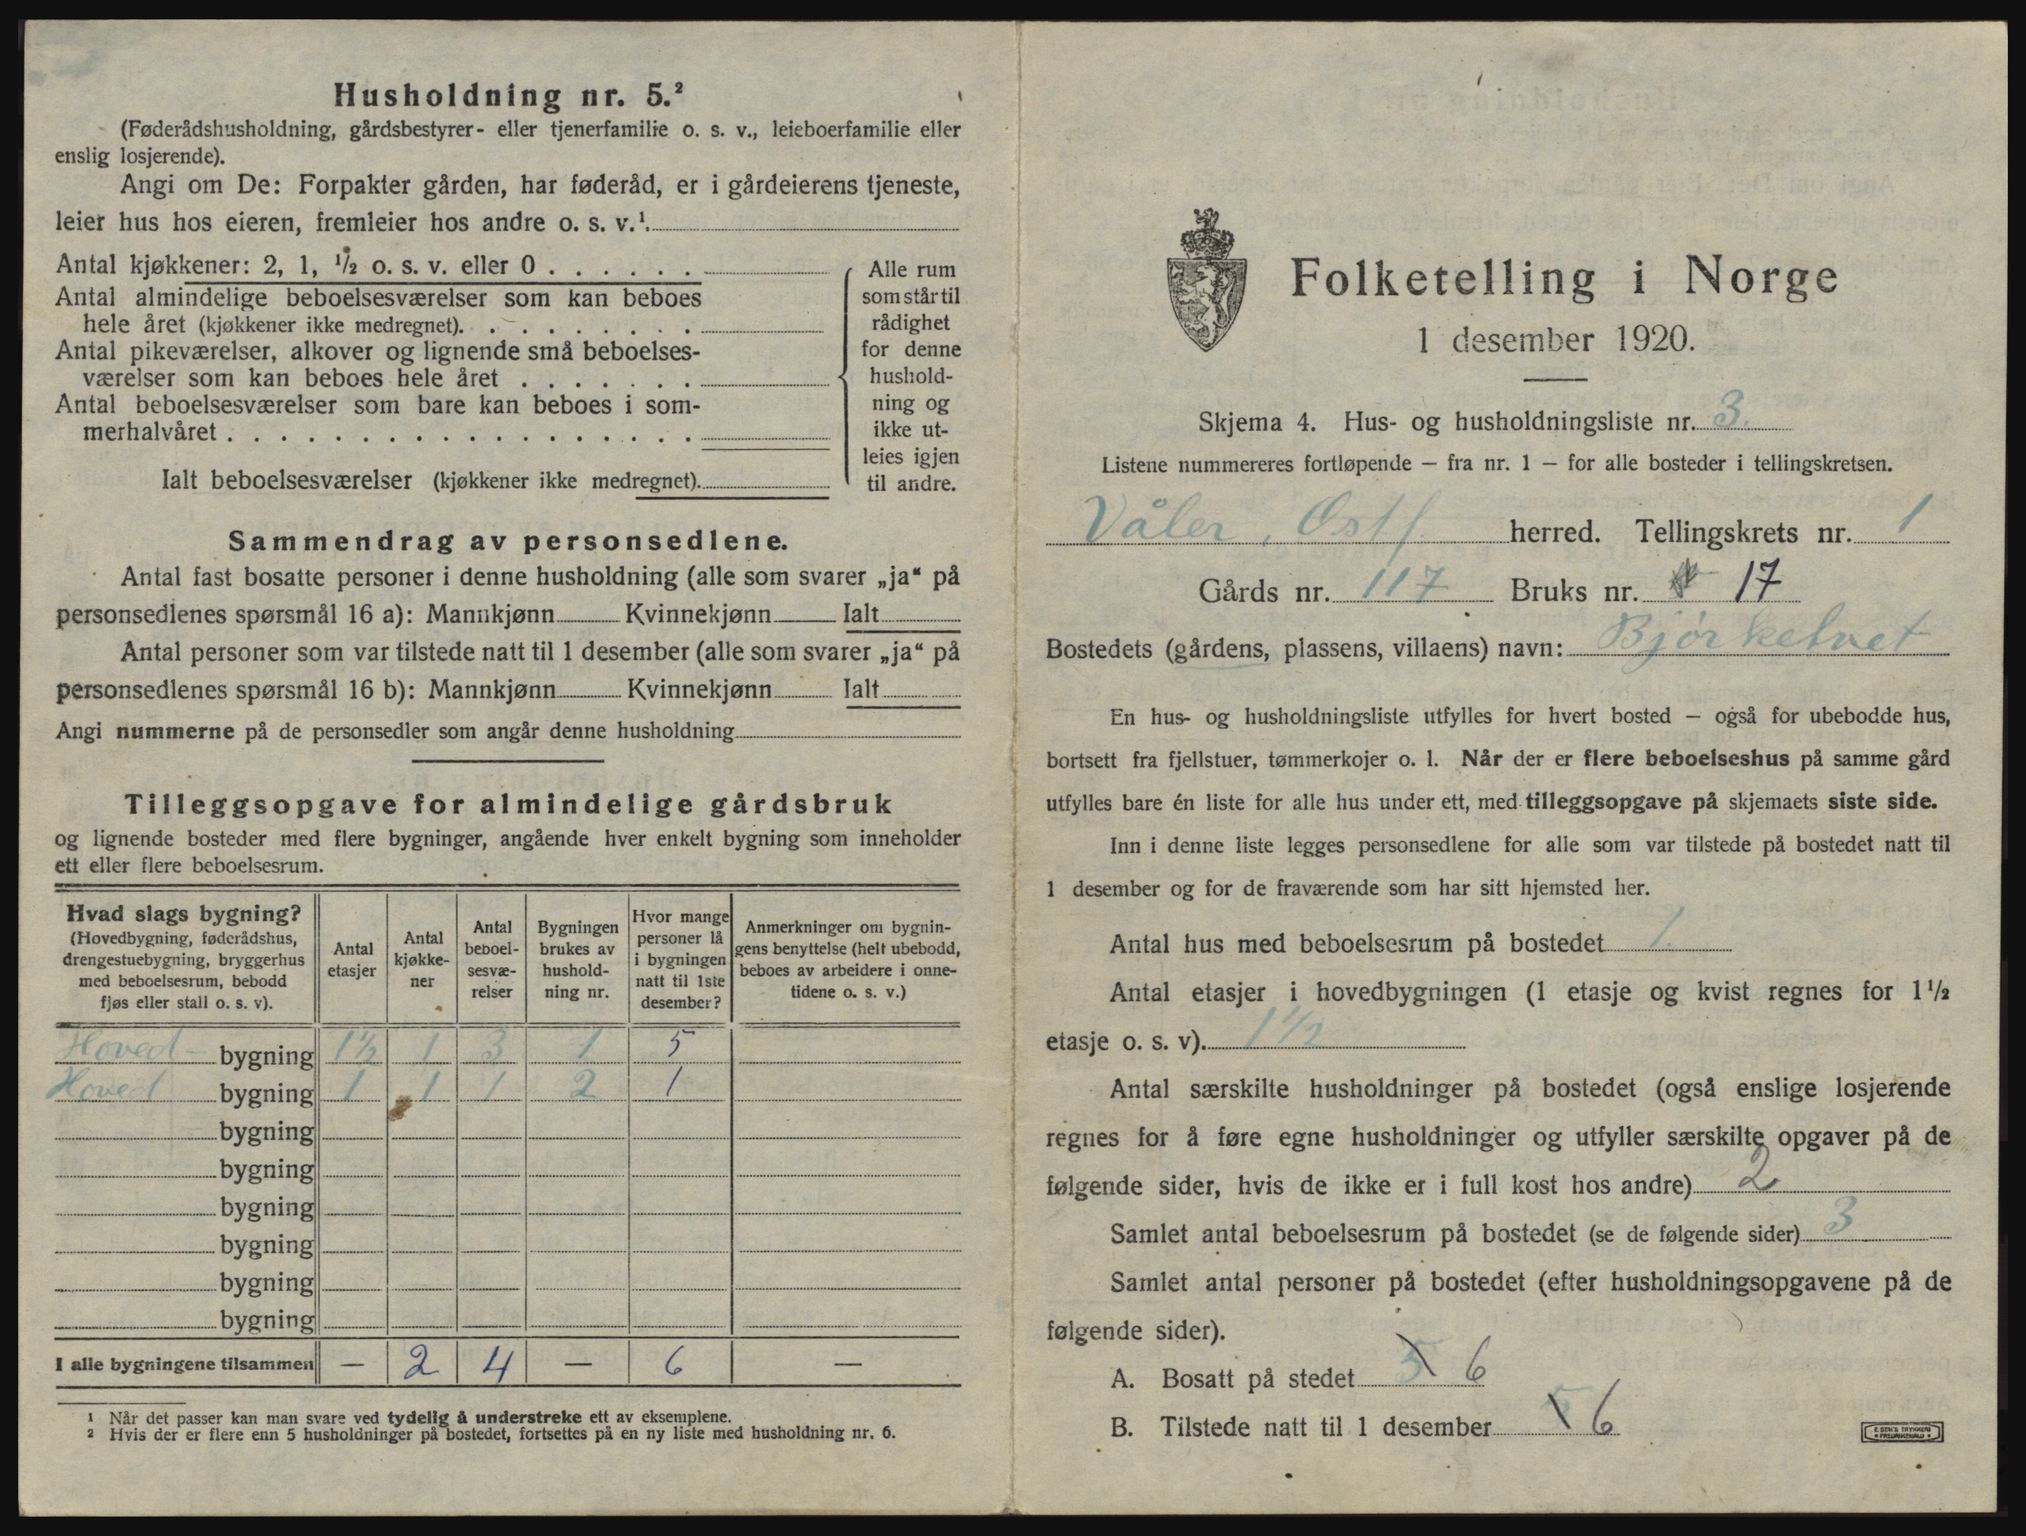 Husholdning nr. 5.²
(Føderådshusholdning, gårdsbestyrer- eller tjenerfamilie o. s. v., leieboerfamilie eller
enslig losjerende).
Angi om De: Forpakter gården, har føderåd, er i gårdeierens tjeneste,
leier hus hos eieren, fremleier hos andre o. s. v.¹.
Antal kjøkkener: 2, 1, ½ o. s. v. eller 0 . . . . . .
Antal almindelige beboelsesværelser som kan beboes
hele året (kjøkkener ikke medregnet). . . . . . . . .
Antal pikeværelser, alkover og lignende små beboelses-
værelser som kan beboes hele året . . . . . . .
Antal beboelsesværelser som bare kan beboes i som-
merhalvåret . . . . . . . . . . . . . . . . . .
Ialt beboelsesværelser (kjøkkener ikke medregnet).
Alle rum
som står til
rådighet
for denne
hushold-
ning og
ikke ut-
leies igjen
til andre.
Sammendrag av personsedlene.
Antal fast bosatte personer i denne husholdning (alle som svarer „ja“ på
personsedlenes spørsmål 16 a): Mannkjønn Kvinnekjønn Ialt
Antal personer som var tilstede natt til 1 desember (alle som svarer „ja“ på
personsedlenes spørsmål 16 b): Mannkjønn Kvinnekjønn Ialt
Angi nummerne på de personsedler som angår denne husholdning
Tilleggsopgave for almindelige gårdsbruk
og lignende bosteder med flere bygninger, angående hver enkelt bygning som inneholder
ett eller flere beboelsesrum.
Hvad slags bygning?
(Hovedbygning, føderådshus,
drengestuebygning, bryggerhus
med beboelsesrum, bebodd
fjøs eller stall o. s. v).
Antal
etasjer
Antal
kjøkke-
ner
Antal
beboel-
sesvæ-
relser
Bygningen
brukes av
hushold-
ning nr.
Hvor mange
personer lå
i bygningen
natt til 1ste
desember?
Anmerkninger om bygnin-
gens benyttelse (helt ubebodd,
beboes av arbeidere i onne-
tidene o. s. v.)
Hoved- bygning 1½ 1 3 1 5
Hoved bygning 1 1 1 2 1
bygning
bygning
bygning
bygning
bygning
bygning
I alle bygningene tilsammen — 2 4 — 6 —
¹ Når det passer kan man svare ved tydelig å understreke ett av eksemplene.
² Hvis der er flere enn 5 husholdninger på bostedet, fortsettes på en ny liste med husholdning nr. 6.
Folketelling i Norge
1 desember 1920.
Skjema 4. Hus- og husholdningsliste nr. 3.
Listene nummereres fortløpende — fra nr. 1 — for alle bosteder i tellingskretsen.
Våler, Østf. herred. Tellingskrets nr. 1
Gårds nr. 117 Bruks nr. 17
Bostedets (gårdens, plassens, villaens) navn: Bjørketvet
En hus- og husholdningsliste utfylles for hvert bosted — også for ubebodde hus,
bortsett fra fjellstuer, tømmerkojer o. l. Når der er flere beboelseshus på samme gård
utfylles bare én liste for alle hus under ett, med tilleggsopgave på skjemaets siste side.
Inn i denne liste legges personsedlene for alle som var tilstede på bostedet natt til
1 desember og for de fraværende som har sitt hjemsted her.
Antal hus med beboelsesrum på bostedet 1.
Antal etasjer i hovedbygningen (1 etasje og kvist regnes for 1½
etasje o. s. v). 1½
Antal særskilte husholdninger på bostedet (også enslige losjerende
regnes for å føre egne husholdninger og utfyller særskilte opgaver på de
følgende sider, hvis de ikke er i full kost hos andre) 2
Samlet antal beboelsesrum på bostedet (se de følgende sider) 3
Samlet antal personer på bostedet (efter husholdningsopgavene på de
følgende sider).
A. Bosatt på stedet 5 6
B. Tilstede natt til 1 desember 5 6